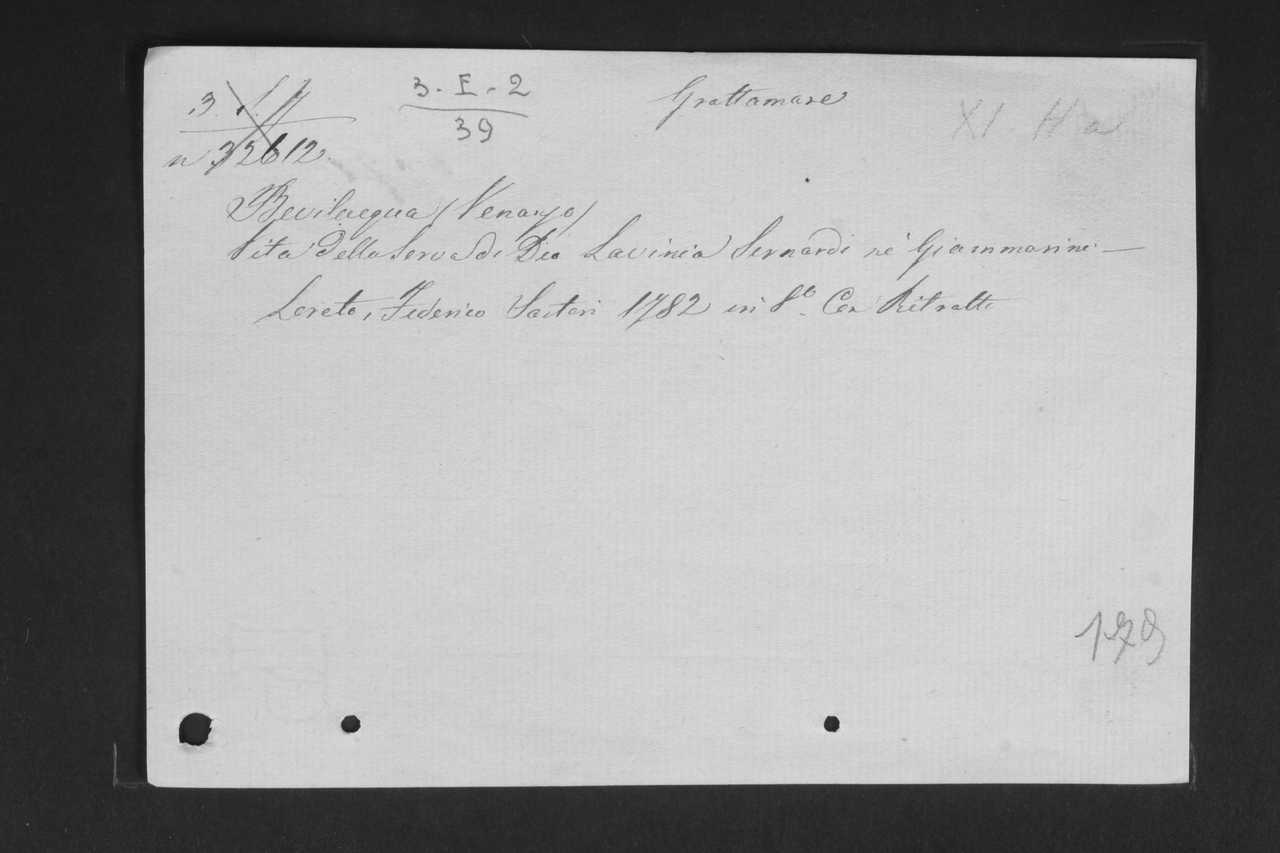 3. E. 2
39
Grottamare
XI H a
n 32612
Bevilacqua (Venanzo)
Vita della Serva di Dio Lavinia Sernardi ne' Giammarini —
Loreto, Federico Sartori 1782 in 8º. Con Ritratto
179